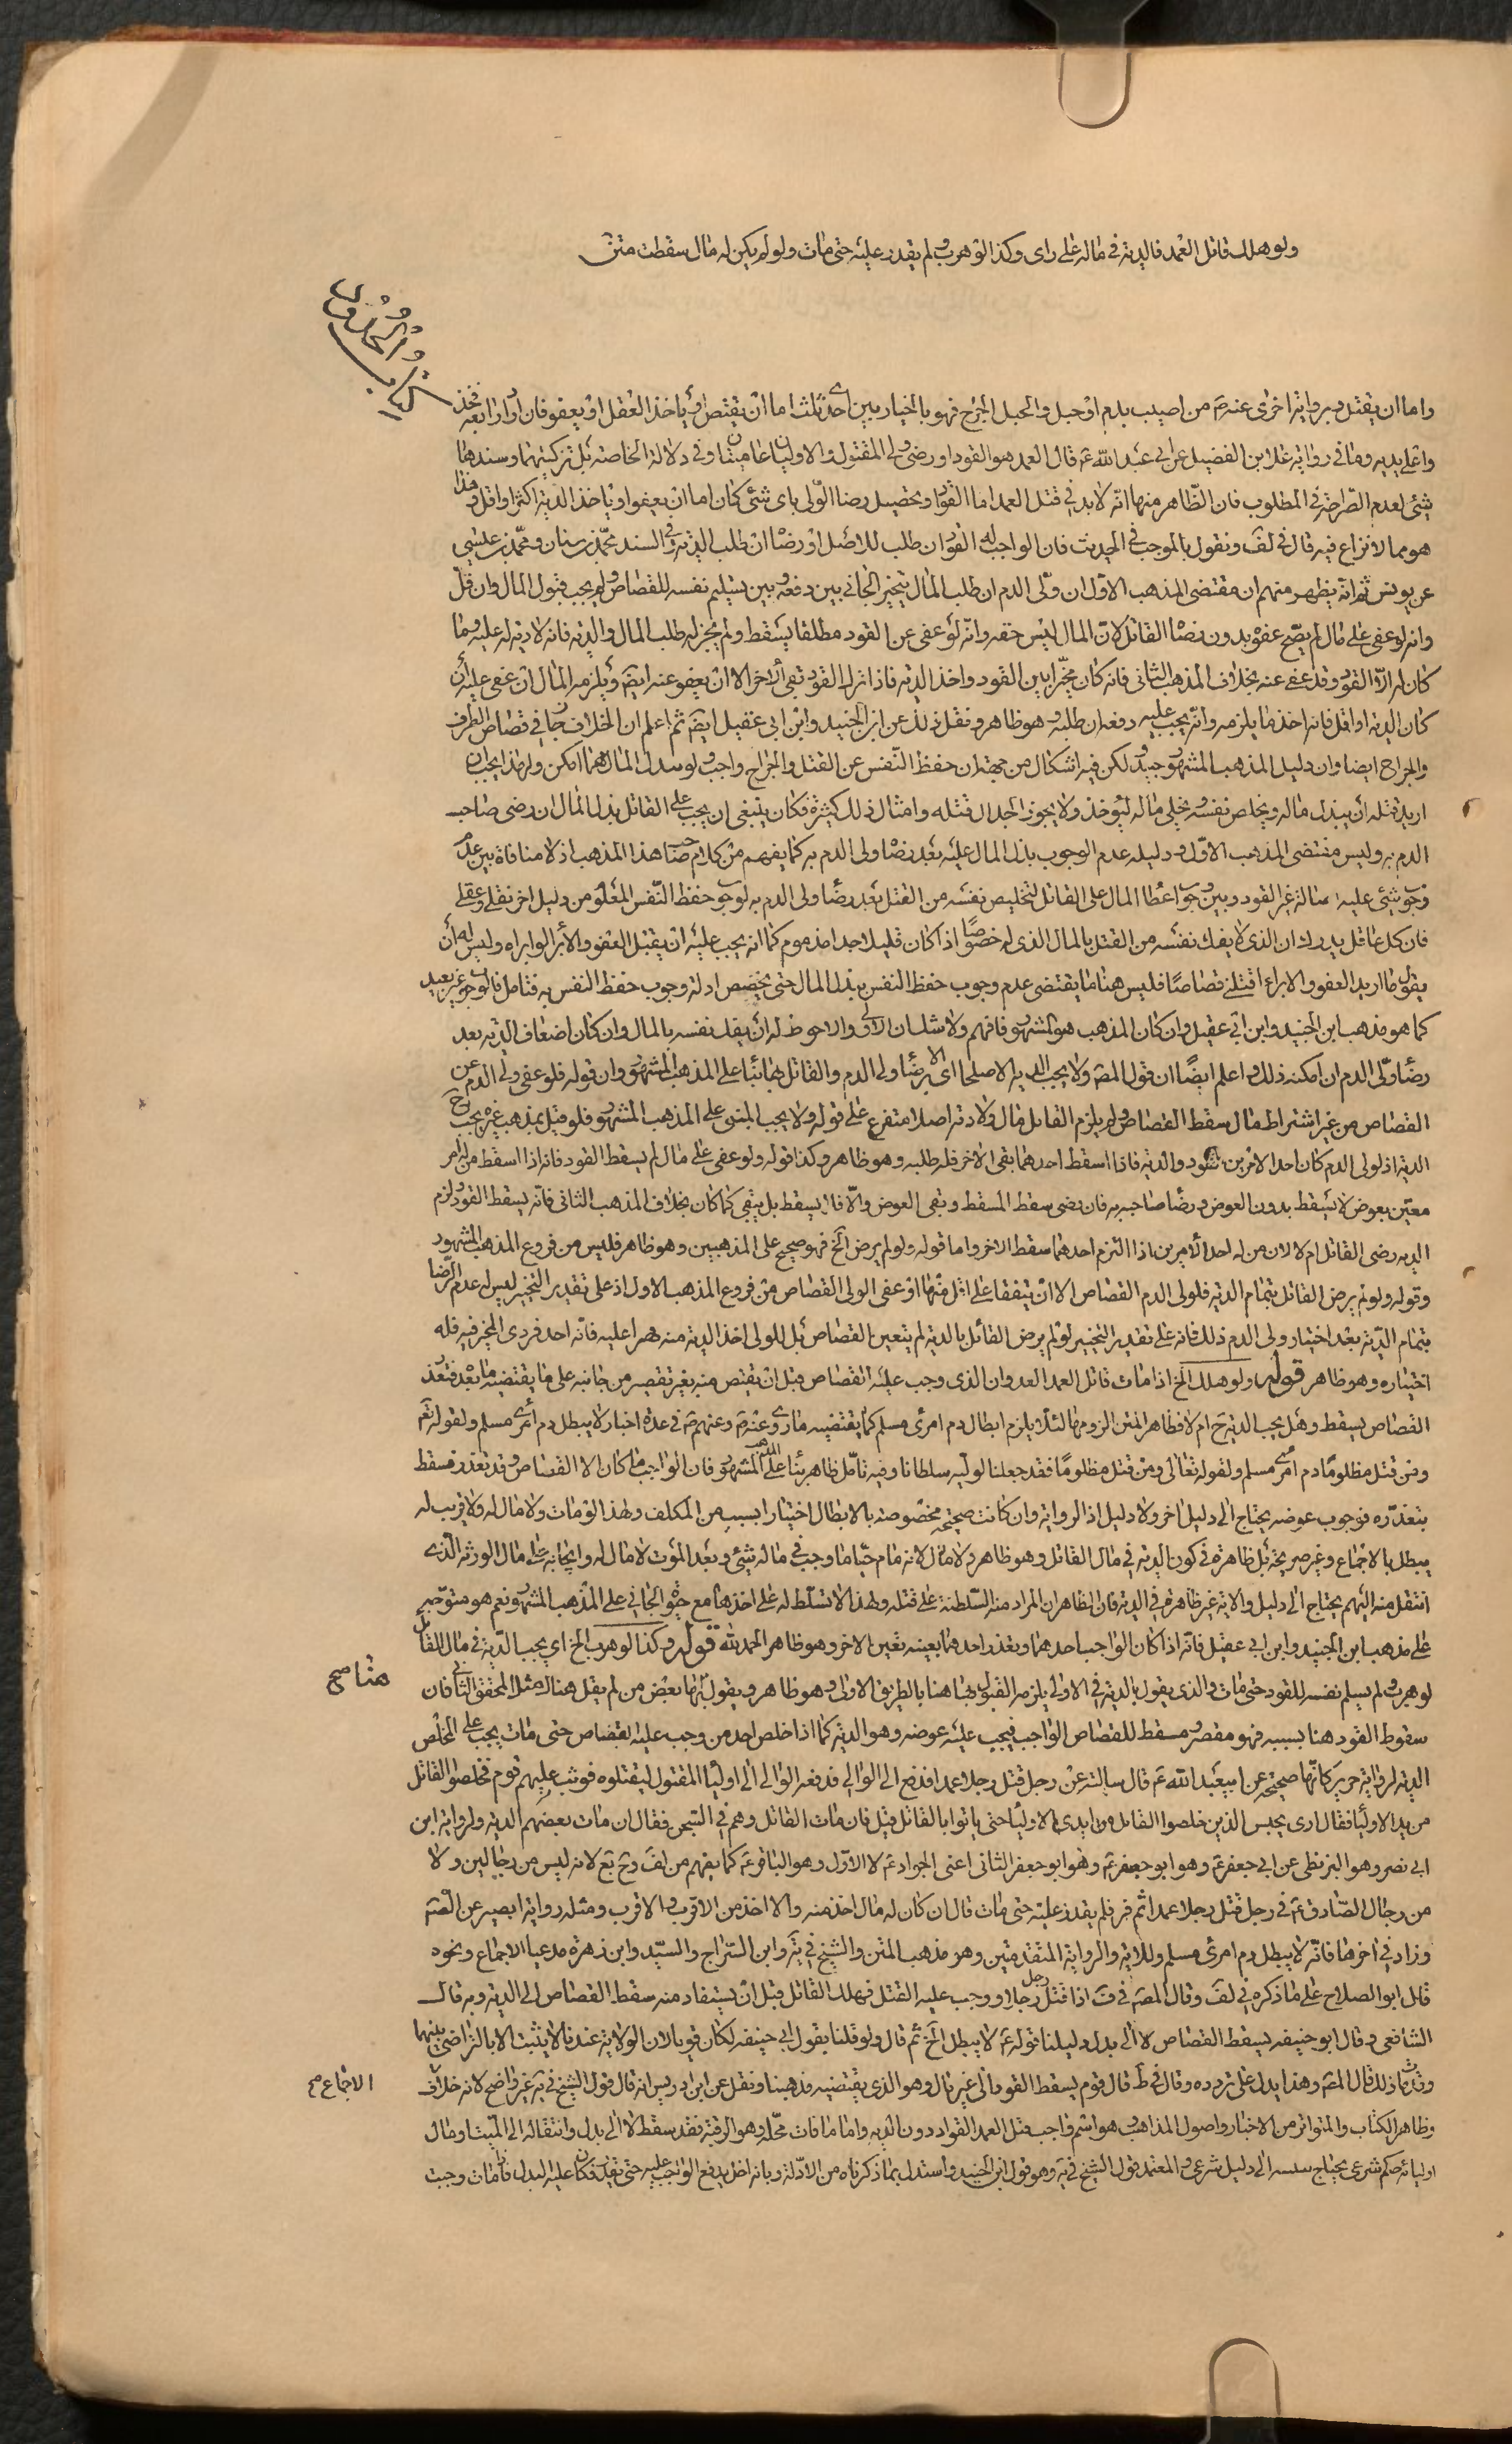 ولو هلك قاتل العمد فالدية في ماله على راى وكذا لو هرب ولم يقدر عليه حتى مات ولو لم يكن له مال سقطت متن
كتاب الحدود
واما ان يقتل وبرواية اخرى عنه ص من اصيب بدم او خبل والخبل الجرح فهو بالخيار بين احدى ثلث اما ان يقتص او ياخذ العقل او يعفو فان اراد رابعة فخذ
واعلى يديه وما في رواية علا بن الفضيل عن ابي عبد الله ع قال العمد هو القود او رضى ولى المقتول والاوليان عاميتان وفي دلالة الخاصة بل تزكيتهما وسندهما
شئ لعدم الصراحة في المطلوب فان الظاهر منها انه لا بد في قتل العمد اما القود او تحصيل رضا الولى باى شئ كان اما ان يعفو او ياخذ الدية اكثر او اقل وهذا
هو مما لا نزاع فيه قال في لف ونقول بالموجب في الحديث فان الواجب له القود ان طلب للاصل او رضا ان طلب الدية وفي السند محمد بن سنان ومحمد بن عيسى
عن يونس ثم انه يظهر منهم ان مقتضى المذهب الاول ان ولى الدم ان طلب المال يتخير الجاني بين دفعه وبين تسليم نفسه للقصاص ولم يجب قبول المال وان قل
وانه لو عفى على مال لم يصح عفوه بدون رضا القاتل لان المال ليس حقه وانه لو عفى عن القود مطلقا يسقط ولم يجز له طلب المال والدية فانه لا دية له عليه وما
كان له الا القود وقد عفى عنه بخلاف المذهب الثانى فانه كان مخيرا بين القود واخذ الدية فاذا ترك القود تبقى الاخر الا ان يعفو عنه ايض ويلزمه المال ان عفى عليه ان
كان الدية او اقل فانه اخذ ما يلزمه وانه يجب عليه دفعه ان طلبه وهو ظاهر ونقل ذلك عن ابن الجنيد وابن ابي عقيل ايض ثم اعلم ان الخلاف جار في قصاص الطرف
والجراح ايضا وان دليل المذهب المشهور جيد ولكن فيه اشكال من جهة ان حفظ النفس عن القتل والجراح واجب ولو ببذل المال مهما امكن ولهذا يجب ان
اريد قتله ان يبذل ماله ويخلص نفسه ويخلى ماله ليؤخذ ولا يجوز الجدال قتله وامثال ذلك كثيرة فكان ينبغي ان يجب على القاتل بذل المال ان رضى صاحب
الدم به وليس مقتضى المذهب الاول ودليله عدم الوجوب بذل المال عليه بعد رضا ولى الدم به كما يفهم من كلام صاحب هذا المذهب اذ لا منافاة بين عدم
وجوب شئ عليه اصالة غير القود وبين وجوب اعطا المال على القاتل لتخليص نفسه من القتل بعد رضا ولى الدم به لوجوب حفظ النفس المعلوم من دليل اخر نقلى وعقلى
فان كل عاقل يدرك ان الذى لا يفك نفسه من القتل بالمال الذى له خصوصا اذا كان قليلا جدا مذموم كما انه يجب عليه ان يقبل العفو والابرا لو ابراه وليس له ان
يقول ما اريد العفو والابراء اقتلنى قصاصا فليس هنا ما يقتضى عدم وجوب حفظ النفس ببذل المال حتى يخصص ادلة وجوب حفظ النفس به فتامل فالوجوب غير بعيد
كما هو مذهب ابن الجنيد وابن ابي عقيل وان كان المذهب هو المشهور فافهم ولا شك ان الاولى والاحوط له ان يفك نفسه بالمال وان كان اضعاف الدية بعد
رضا ولى الدم ان امكنه ذلك واعلم ايضا ان قول المص ولا يجب الدية الا صلحا اى الا برضا ولى الدم والقاتل بها بناء على المذهب المشهور وان قوله فلو عفى ولى الدم عن
القصاص من غير اشتراط مال سقط القصاص ولم يلزم القاتل مال ولا دية اصلا متفرع على قوله ولا يجب المبنى على المذهب المشهور فلو قيل بمذهب غيره يجب ح
الدية اذ لولى الدم كان احد الامرين القود والدية فاذا اسقط احدهما بقى الاخر فله طلبه وهو ظاهر وكذا قوله ولو عفى على مال لم يسقط القود فانه اذا اسقط من له امر
معين بعوض لا يسقط بدون العوض ورضا صاحبه به فان رضى سقط المسقط وتبقى العوض والا فلا يسقط بل يبقى كما كان بخلاف المذهب الثانى فانه يسقط القود ولزم
الدية رضى القاتل ام لا لان من له احد الامرين اذا التزم احدهما سقط الاخر واما قوله ولو لم يرض الخ فهو صحيح على المذهبين وهو ظاهر فليس من فروع المذهب المشهور
وقوله ولو لم يرض القاتل بتمام الدية فلولى الدم القصاص الا ان يتفقا على اقل منها او عفى الولى القصاص من فروع المذهب الاول اذ على تقدير التخيير ليس له عدم الرضا
بتمام الدية بعد اختيار ولى الدم ذلك فانه على تقدير التخيير لو لم يرض القاتل بالدية لم يتعين القصاص بل للولى اخذ الدية منه قهرا عليه فانه احد فردى المخير فيه فله
اختياره وهو ظاهر قوله ولو هلك الخ اذا مات قاتل العمد العدوان الذى وجب عليه القصاص قبل ان يقتص منه بغير تقصير من جانبه على ما يقتضيه ما بعد فتعذر
القصاص يسقط وهل يجب الدية ح ام لا فظاهر المتن لزومها لئلا يلزم ابطال دم امرئ مسلم كما يقتضيه ما روى عنه ص وعنهم ص في عدة اخبار لا يبطل دم امرئ مسلم ولقوله تعم
ومن قتل مظلوما دم امرئ مسلم ولقوله تعالى ومن قتل مظلوما فقد جعلنا لوليه سلطانا وفيه تامل ظاهر بناء على المذهب المشهور فان الواجب ما كان الا القصاص وقد تعذر فسقط
بتعذره فوجوب عوضه يحتاج الى دليل اخر ولا دليل اذ الرواية وان كانت صحيحة مخصوصة بالابطال اختيارا بسبب من المكلف ولهذا لو مات ولا مال له ولا قريب له
يبطل بالاجماع وغير صريحة بل ظاهرة في كون الدية في مال القاتل وهو ظاهر ولا مال لانه مادام حيا ما وجب في ماله شئ وبعد الموت لا مال له وايجابه على مال الورثة الذى
انتقل منه اليهم يحتاج الى دليل والاية غير ظاهرة في الدية فان الظاهر ان المراد منه السلطنة على قتله ولهذا لا تسلط له على اخذها مع حيوة الجاني على المذهب المشهور نعم هو متوجه
على مذهب ابن الجنيد وابن ابي عقيل فانه اذا كان الواجب احدهما وتعذر احدهما بعينه تعين الاخر وهو ظاهر الحمد لله قوله وكذا لو هرب الخ اي يجب الدية في مال القاتل
لو هرب ولم يسلم نفسه للقود حتى مات والذى يقول بالدية في الاولى يلزمه القبول بها هنا بالطريق الاولى وهو ظاهر ويقول بها بعض من لم يقل هناك مثل المحقق الثانى فان
هنا صح
سقوط القود هنا بسببه فهو مقصر مسقط للقصاص الواجب فيجب عليه عوضه وهو الدية كما اذا خلص احد من وجب عليه القصاص حتى مات يجب على المخلص
الدية لرواية حريز كانها صحيحة عن ابي عبد الله ع قال سالته عن رجل قتل رجلا عمدا فدفع الى الوالي فدفعه الوالى الى اوليا المقتول ليقتلوه فوثب عليهم قوم فخلصوا القاتل
من يد الاوليا فقال ارى يحبس الذين خلصوا القاتل من ايدى الاوليا حتى ياتوا بالقاتل قيل فان مات القاتل وهم في السجن فقال ان مات بعضهم الدية ولرواية ابن
ابي نصر وهو البزنطى عن ابي جعفر ع وهو ابو جعفر ع وهو ابو جعفر الثانى اعنى الجواد ع لا الاول وهو الباقر ع كما يفهم من لف وح يع لانه ليس من رجالين ولا
من رجال الصادق ع في رجل قتل رجلا عمدا ثم فر فلم يقدر عليه حتى مات قال ان كان له مال اخذ منه والا اخذ من الاقرب والاقرب ومثله رواية ابصير عن الص ع
وزاد في اخرها فانه لا يبطل دم امرئ مسلم وللاية والرواية المتقدمتين وهو مذهب المتن والشيخ في ية وابن السراج والسيد وابن زهرة مدعيا الاجماع ونحوه
قال ابو الصلاح على ما ذكره في لف وقال المص في ف اذا قتل رجل رجلا ووجب عليه القتل فهلك القاتل قبل ان يستفاد منه سقط القصاص الى الدية وبه قال
الشافعي وقال ابو حنيفه يسقط القصاص لا الى بدل دليلنا قوله ع لا يبطل الخ ثم قال ولو قلنا بقول ابي حنيفه لكان قويا لان الولاية عندنا لا يثبت الا بالتراضى بينهما
وقد مات ذلك قال المص وهذا يدل على تردده وقال في ط قال قوم يسقط القود الى غير مال وهو الذى يقتضيه مذهبنا ونقل عن ابن ادريس انه قال قول الشيخ في ية غير واضح لانه خلاف
الاجماع صح
وظاهر الكتاب والمتواتر من الاخبار واصول المذاهب وهو اشم واجب قتل العمد القواد دون الدية واما ما فات محله وهو الرقبة فقد سقط لا الى بدل وانتقاله الى الميت او مال
اوليائه حكم شرعى يحتاج الى دليل شرعى والمعتمد قول الشيخ في ية وهو قول ابن الجنيد واستدل بما ذكرناه من الادلة وبانه اخل بدفع الواجب عليه حتى تعذر فكان عليه البدل فامات وجبت